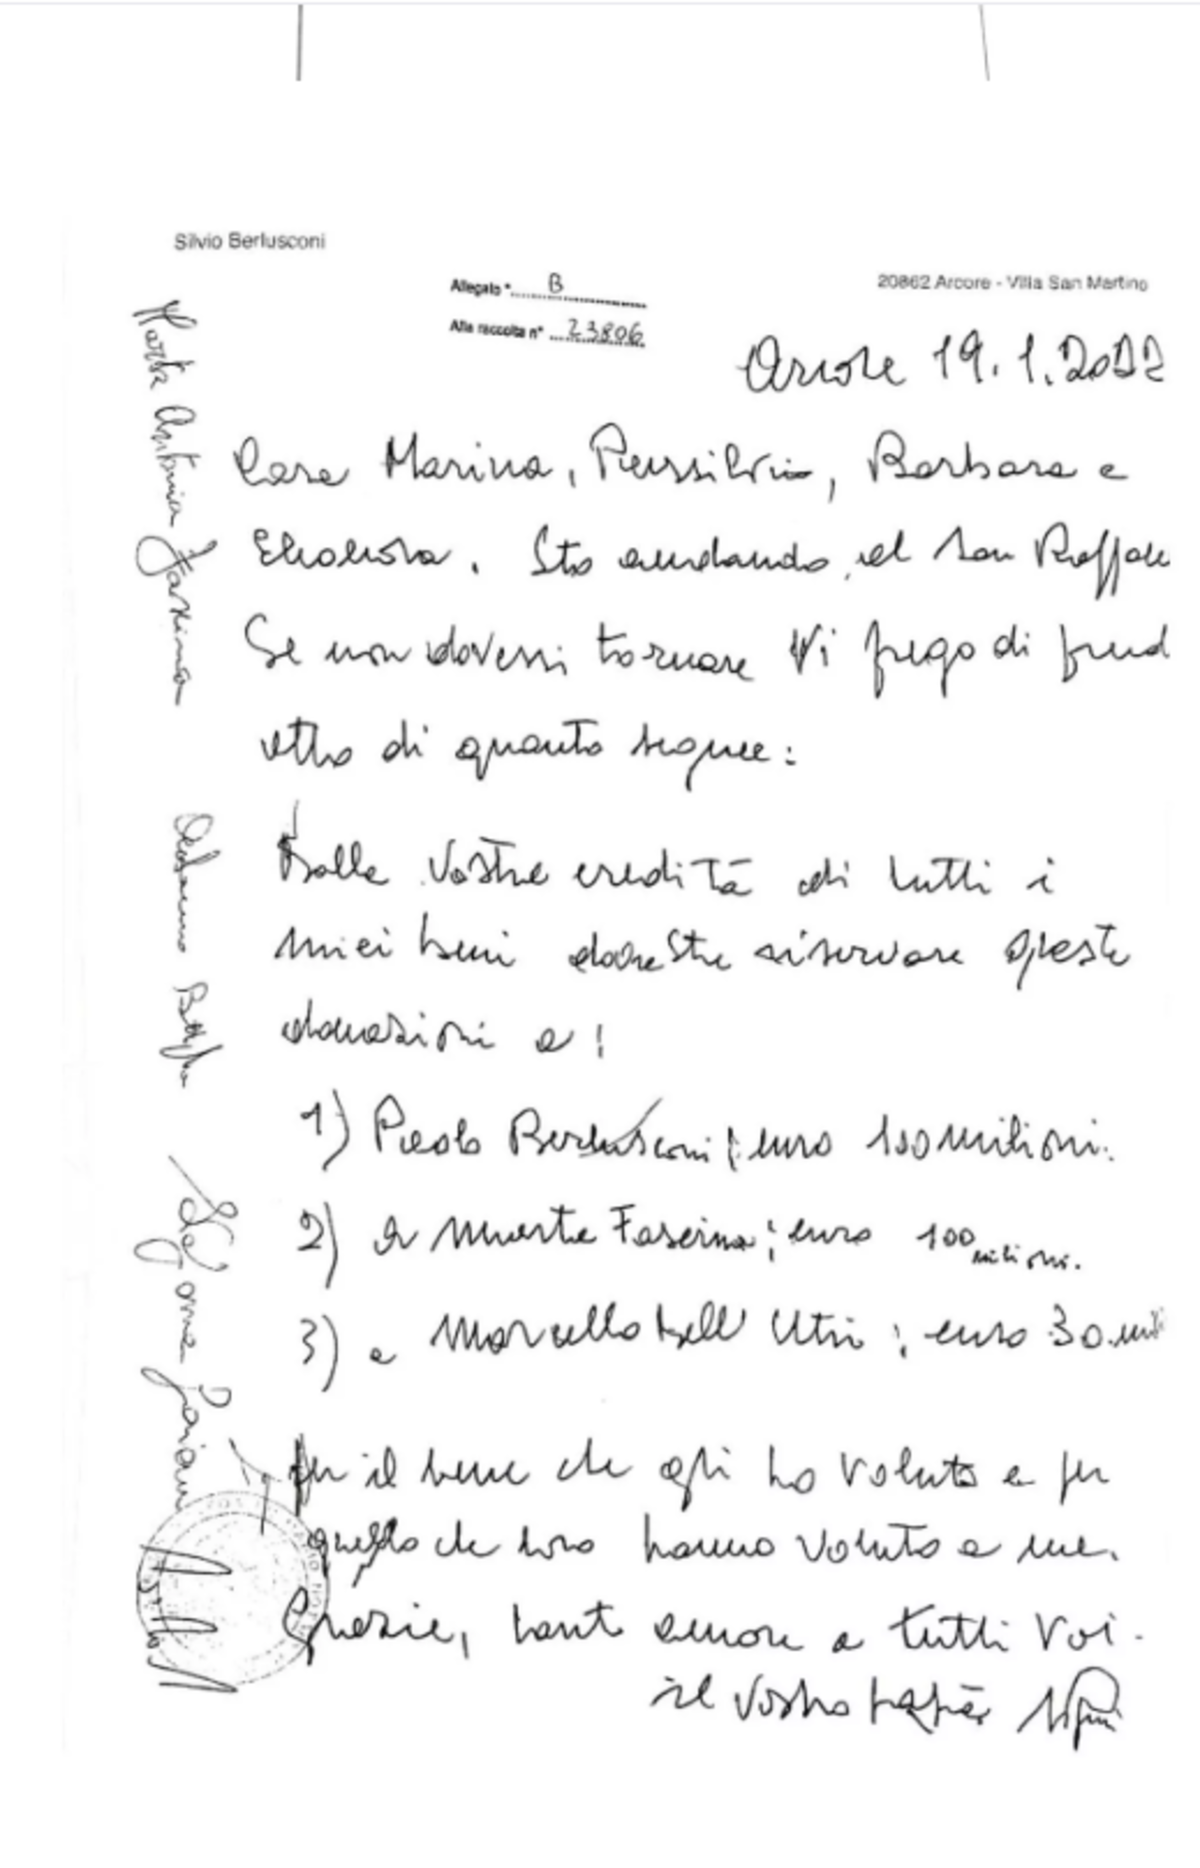 Silvio Berlusconi
Allegato "B
20862 Arcore - Villa San Martino
Alla raccolta n° 23806
Arcore 19.1.2022
Cara Marina, Piersilvio, Barbara e
Eleonora. Sto andando al San Raffaele
Se non dovessi tornare Vi prego di prend
atto di quanto segue:
Dalle Vostre eredità di tutti i
miei beni dovreste riservare queste
donazioni a:
1) Paolo Berlusconi: euro 100 milioni.
2) a Marta Fascina; euro 100 milioni.
3) a Marcello Dell'Utri; euro 30 mili
Per il bene che gli ho voluto e per
quello che loro hanno voluto a me.
Grazie, tanto amore a tutti Voi.
il Vostro papà
Marta Antonia Fascina